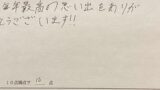 年最高の思い出をありが
とうございます!!
10点満点で 10 点